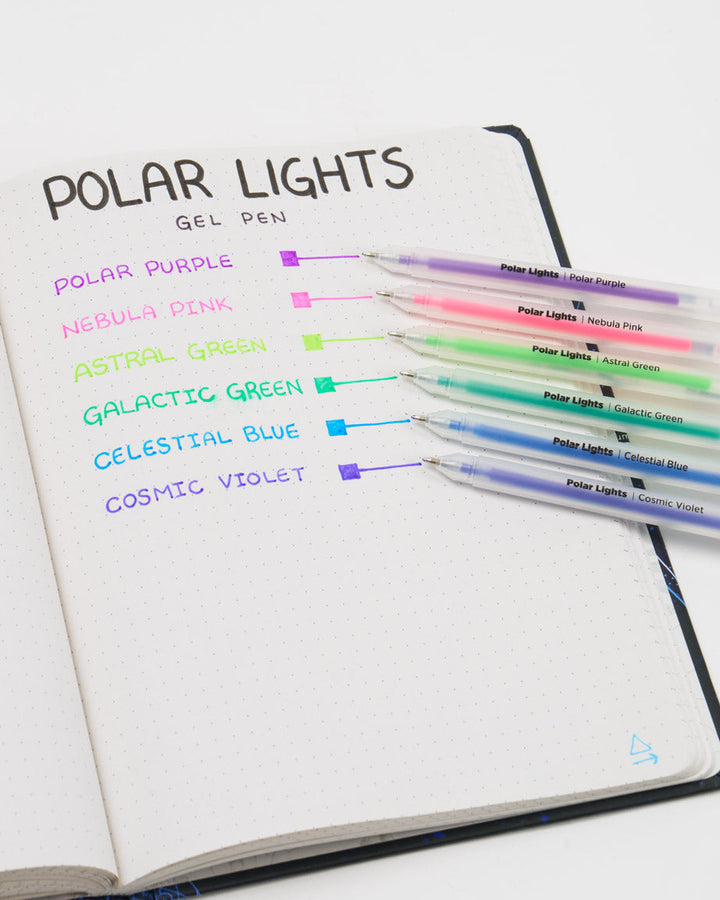 POLAR LIGHTS
GEL PEN
POLAR PURPLE
NEBULA PINK
ASTRAL GREEN
GALACTIC GREEN
CELESTIAL BLUE
COSMIC VIOLET
Polar Lights | Polar Purple
Polar Lights | Nebula Pink
Polar Lights | Astral Green
Polar Lights | Galactic Green
Polar Lights | Celestial Blue
Polar Lights | Cosmic Violet